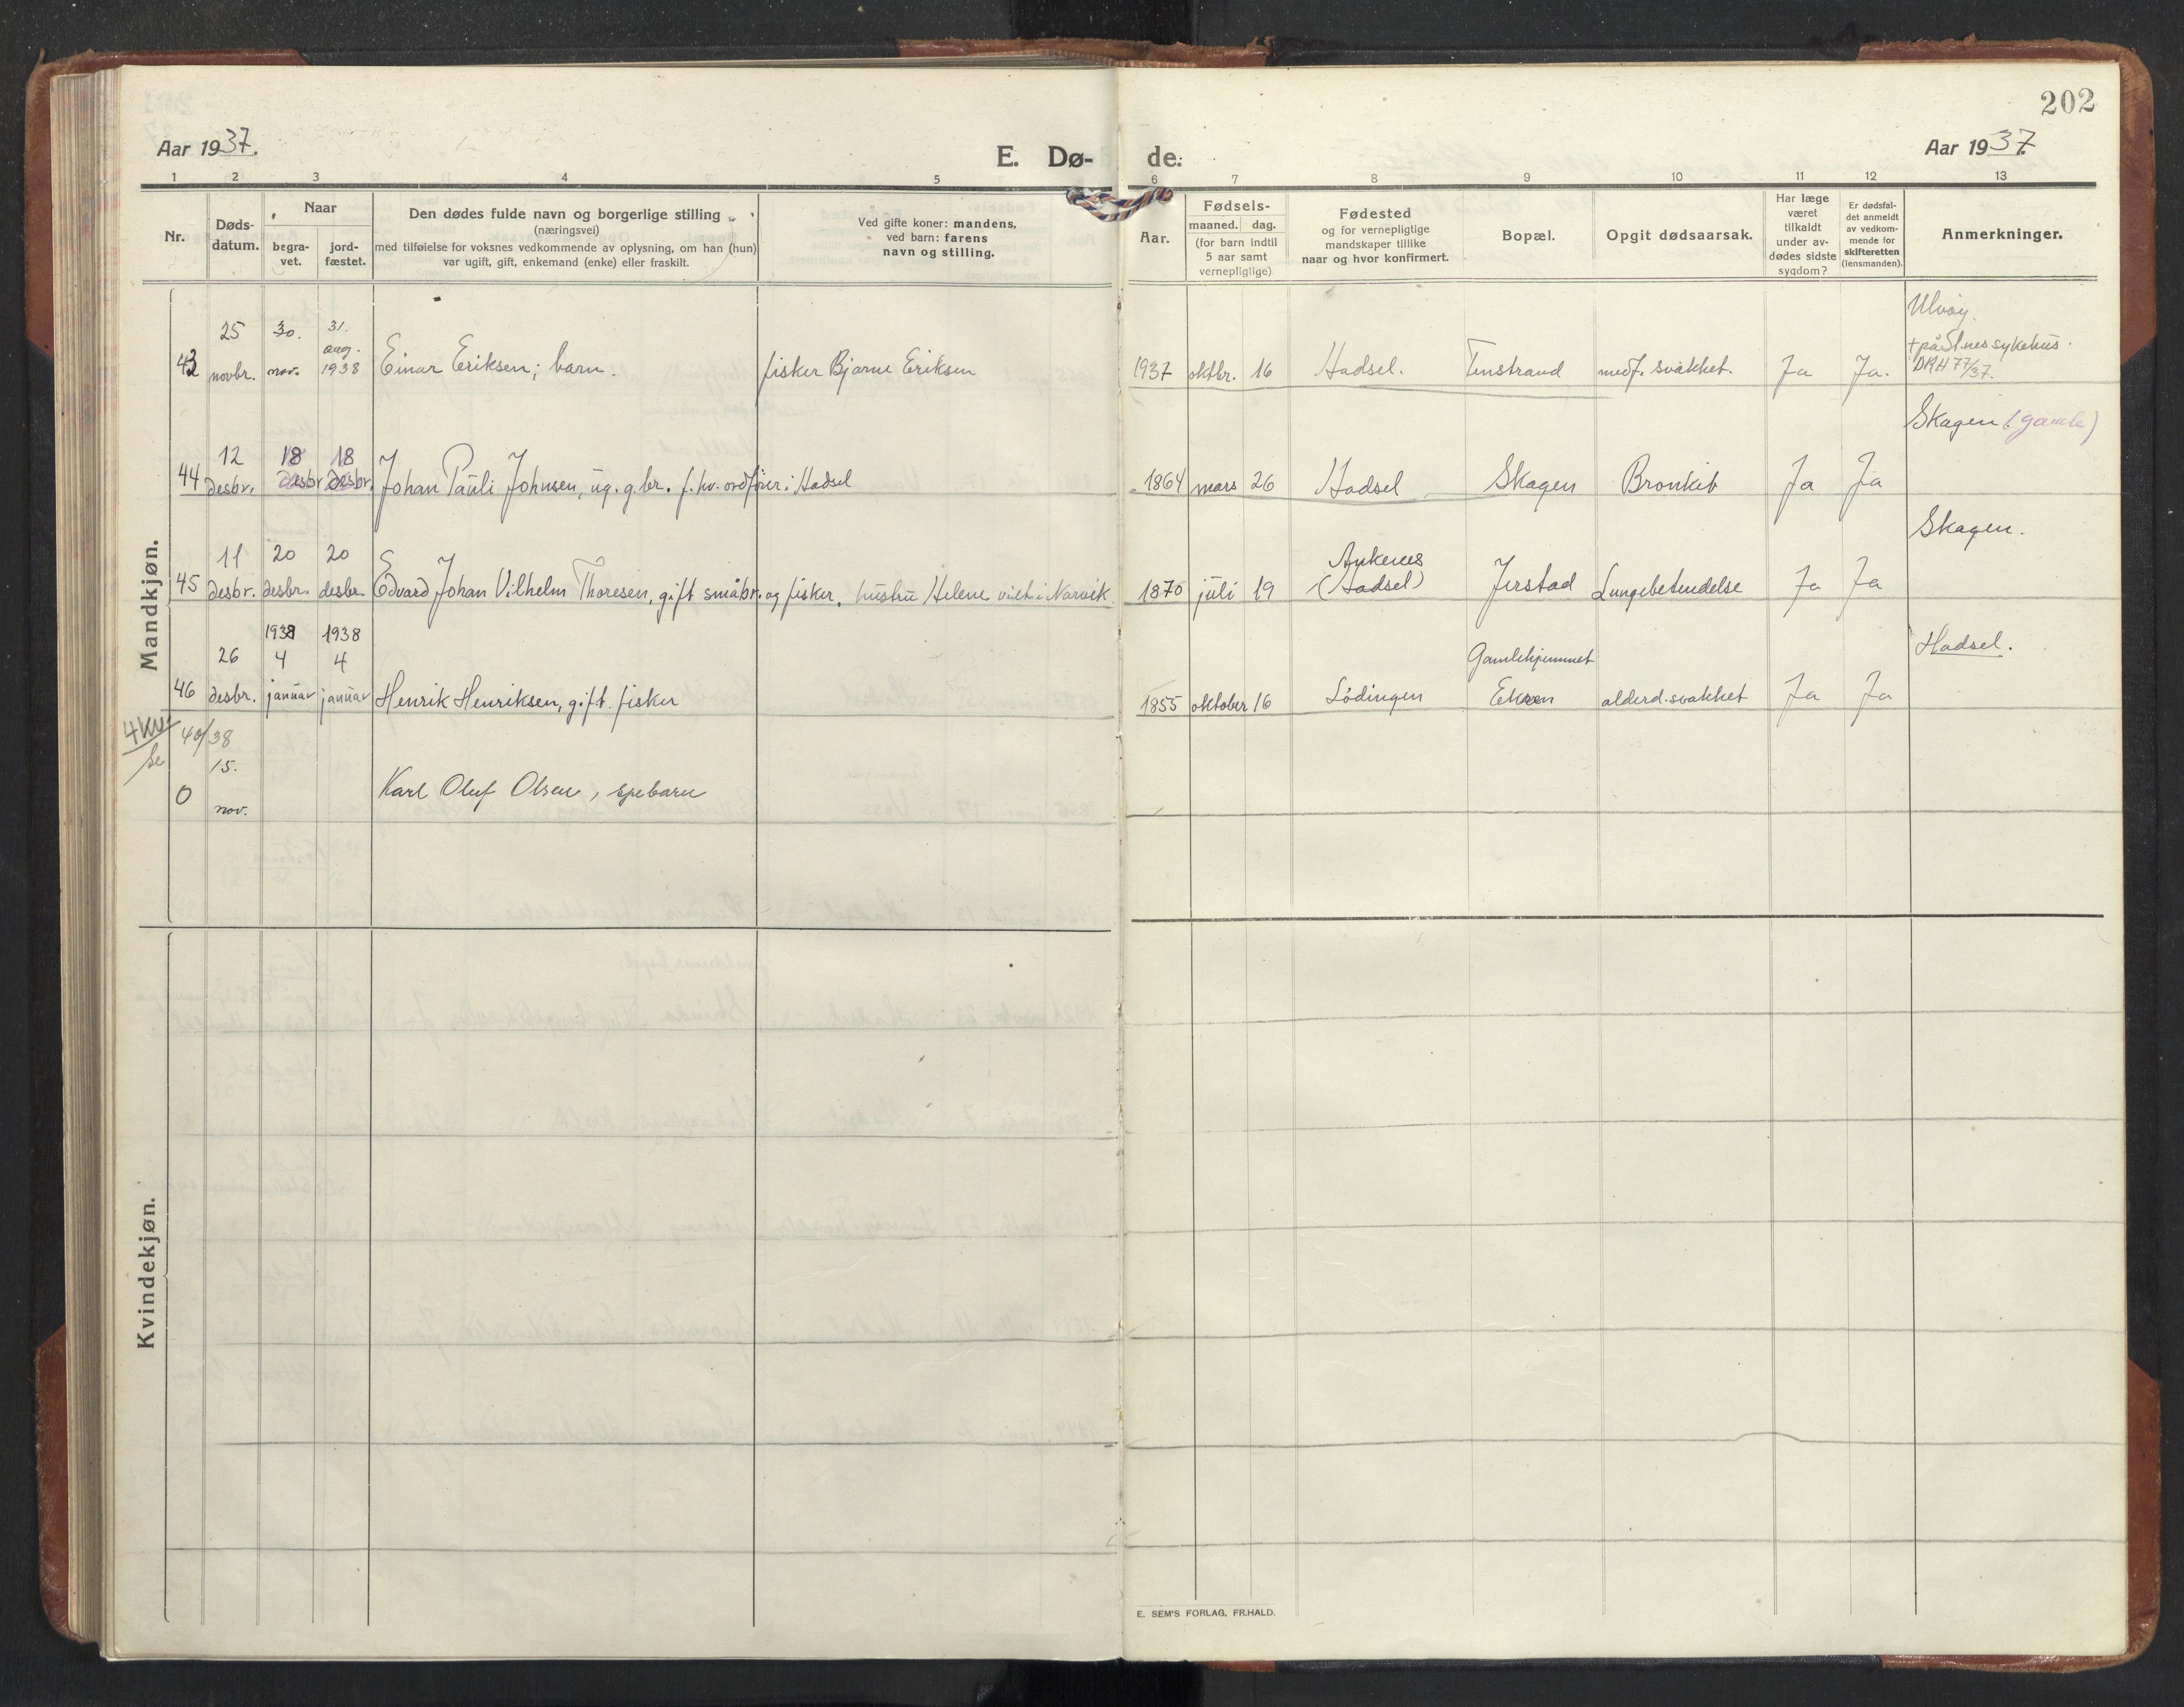 202
Aar 1937.
E. Dø- de.
Aar 1937.
1 2 3 4 5 6 7 8 9 10 11 12 13
Nr.
Døds-
datum.
Naar
begra-
vet.
jord-
fæstet.
Den dødes fulde navn og borgerlige stilling
(næringsvei)
med tilføielse for voksnes vedkommende av oplysning, om han (hun)
var ugift, gift, enkemand (enke) eller fraskilt.
Ved gifte koner: mandens,
ved barn: farens
navn og stilling.
Aar.
Fødsels-
maaned. dag.
(for barn indtil
5 aar samt
vernepligtige)
Fødested
og for vernepligtige
mandskaper tillike
naar og hvor konfirmert.
Bopæl.
Opgit dødsaarsak.
Har læge
været
tilkaldt
under av-
dødes sidste
sygdom?
Er dødsfal-
det anmeldt
av vedkom-
mende for
skifteretten
(lensmanden).
Anmerkninger.
Mandkjøn.
Ulvøy.
25 30. 31.
aug.
+ på St.nes sykehus.
43 novbr. nov. 1938 Einar Eriksen; barn. fisker Bjarne Eriksen 1937 oktbr. 16 Hadsel. Tenstrand medf. svakhet. Ja Ja. DRH 77/37.
Skagen (gamle)
12 18 18
44 desbr. desbr. desbr. Johan Pauli Johnsen, ug. g.br. f.hv. ordfører i Hadsel 1864 mars 26 Hadsel Skagen Bronkit Ja Ja
Skagen.
11 20 20 Ankenes
45 desbr. desbr. desbr. Edvard Johan Vilhelm Thoresen, gift småbr. og fisker. hustru Helene viet i Narvik. 1870 juli 19 (Hadsel) Jerstad Lungebetendelse Ja Ja
1938 1938
Hadsel.
26 4 4 Gamlehjemmet
46 desbr. januar januar Henrik Henriksen, gift. fisker 1855 oktober 16 Lødingen Ekren alderd.svakhet Ja Ja
40/38
15.
0 nov. Karl Oluf Olsen, spebarn
Kvindekjøn.
E. SEM'S FORLAG, FR.HALD.